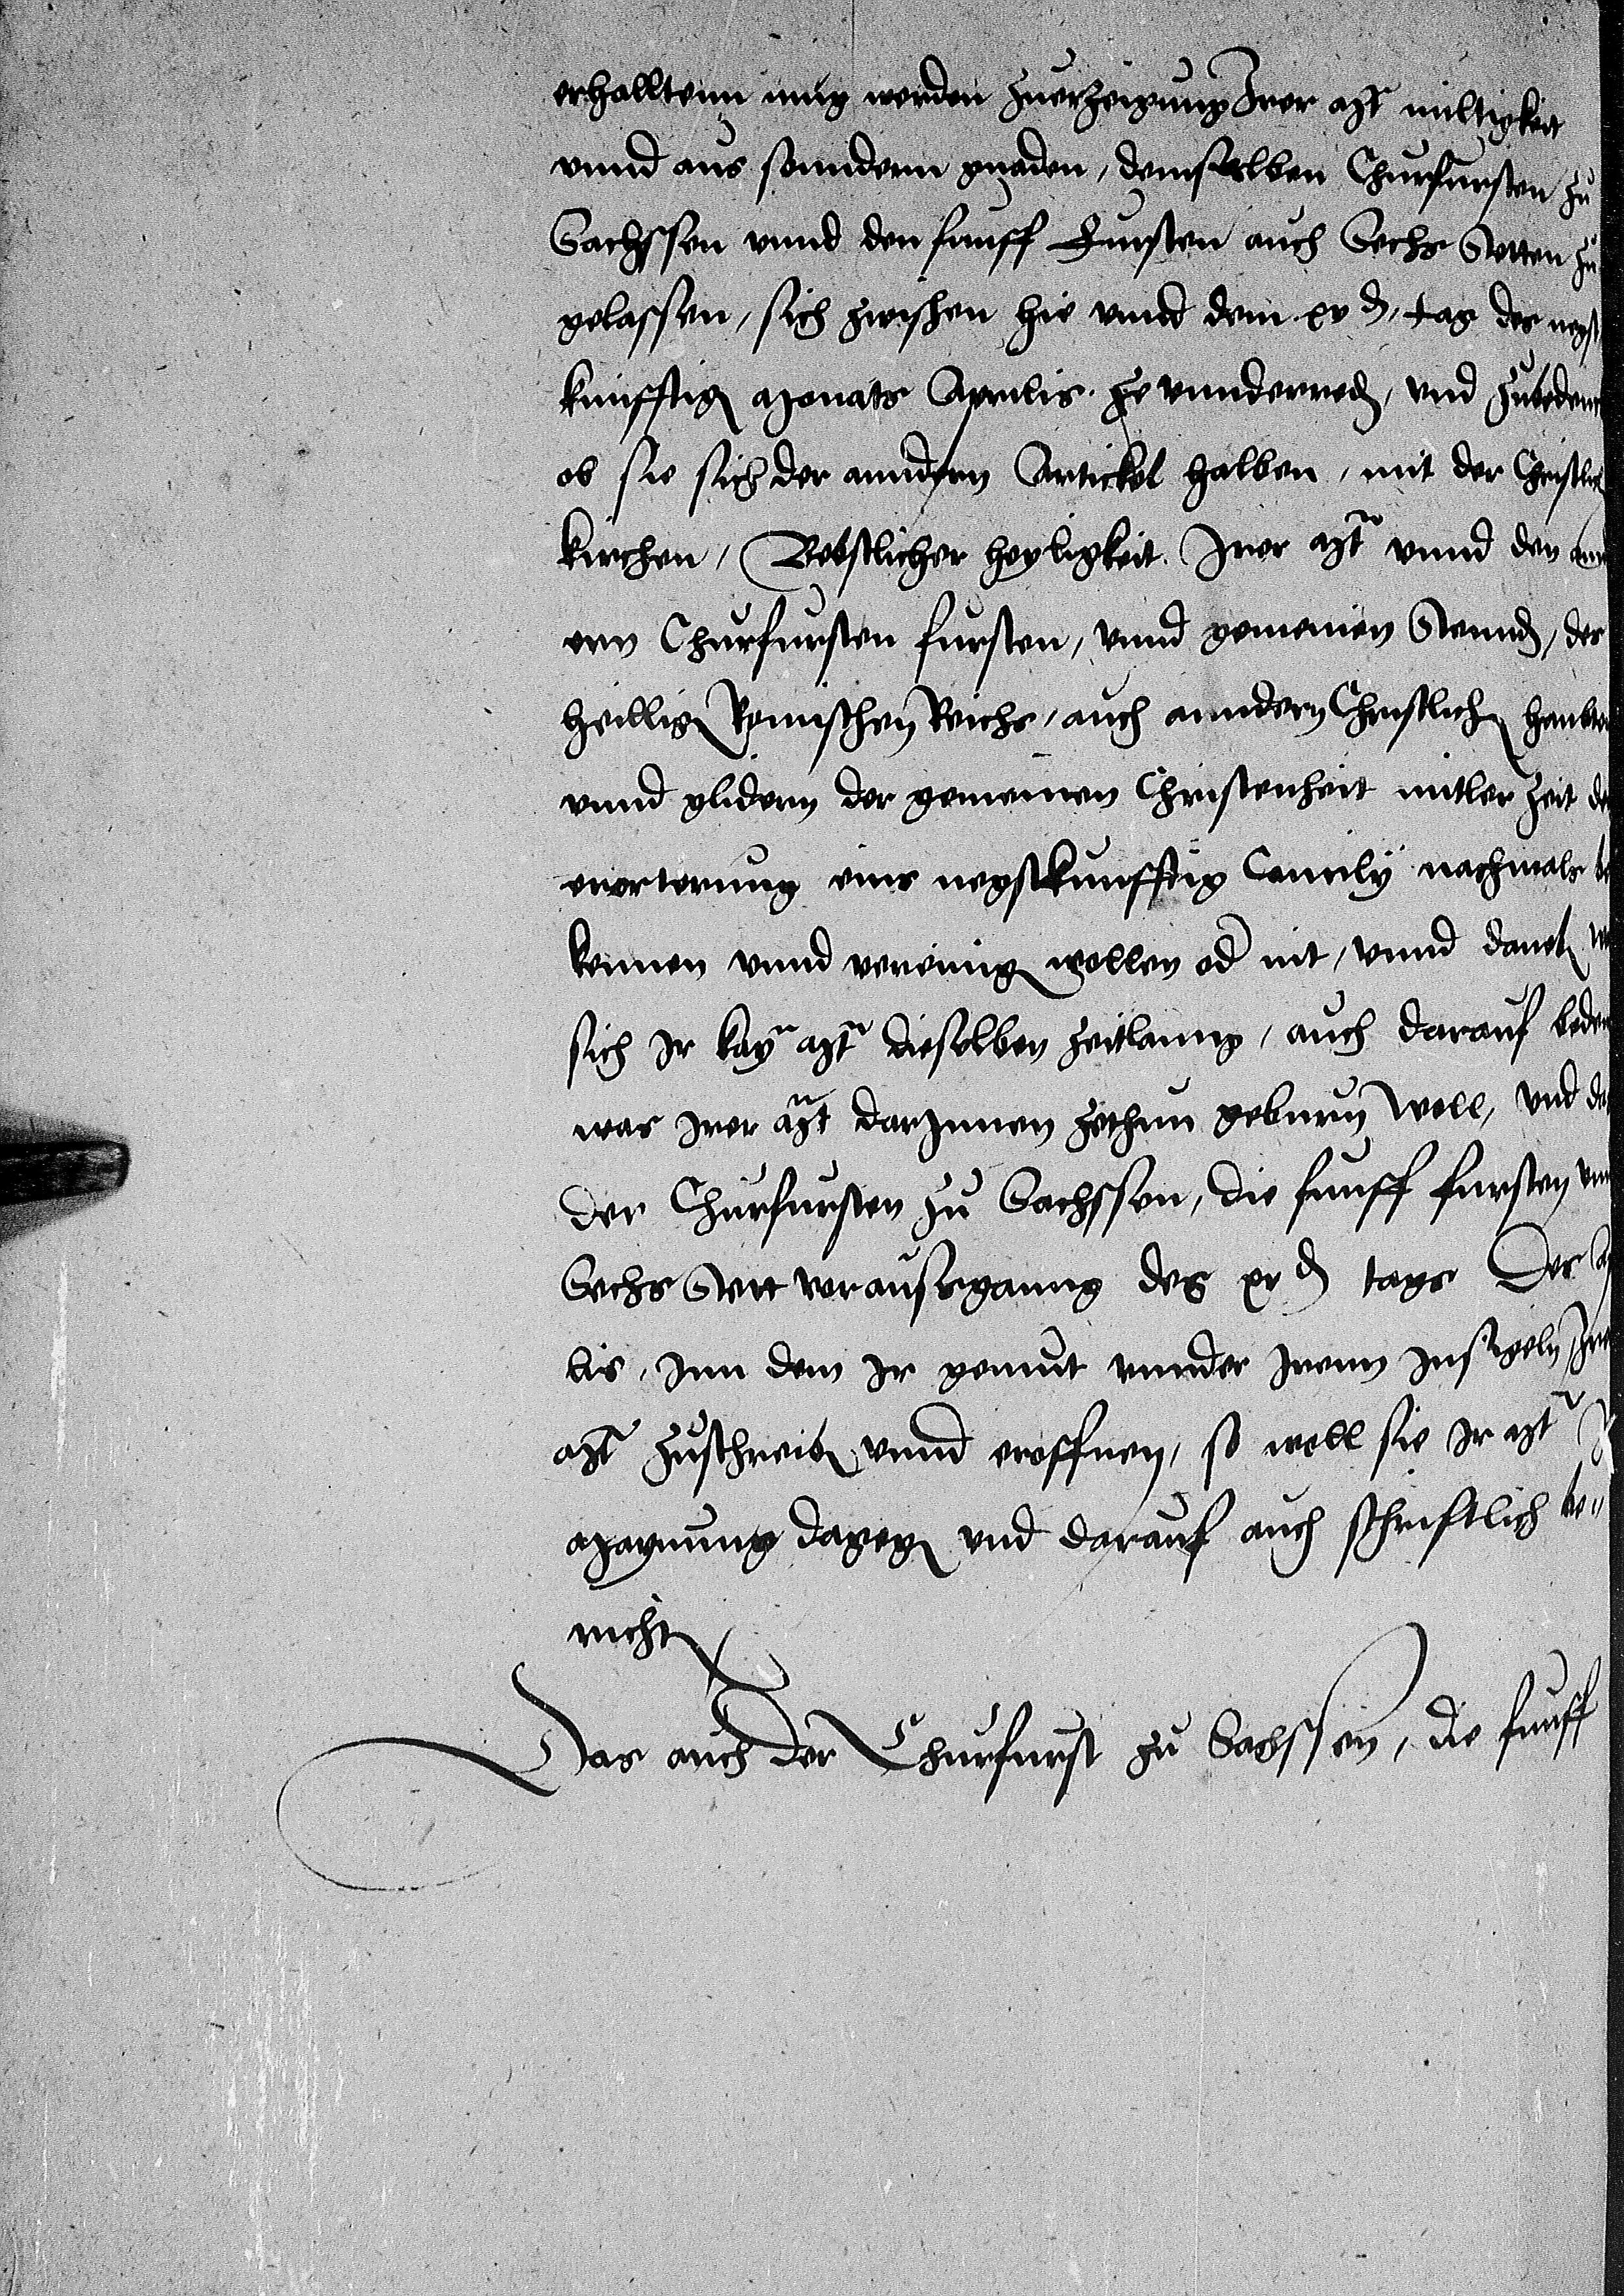 erhalltenn mug werden zuerzeigung Irer Mt miltigkeit
vnnd aus sonndern gnaden, demselben Churfursten zu
Sachssen vnnd den funff Fursten auch Sechs Stetten zu
gelassen, sich zwischen hie vnnd dem xvd, tag des negst
kunfftig Monats Aprilis. ze vnnderred, vnd zubeden
ob sie sich der anndern Artickel halben, mit der Christlich
kirchen, Bebstlicher heyligkeit. Irer Mt vnnd den annd
ern Churfursten fursten, vnnd gemeinen Stennd, des
heillig Romischen Reichs, auch anndern Christlich heubte
vnnd glidern der gemeinen Christenheit mitler zeit de
erorterung eins negstkunfftig Concily nachmals be
kennen vnnd vereinig wollen od nit, vnnd daneb
sich Ir kay Mt dieselben zeitlanng, auch darauf beden
was Irer Mt darInnen zethun geburn well, vnd da
der Churfursten zu Sachssen, die funff fursten vnn
Sechs Stett vor außganng des xvd tags Des A
lis, Inn dem Ir gemut vnnder Irenn Insigeln, Ire
Mt zuschreib vnnd eroffnen, so well sie Ir Mt
Maynung dageg vnd darauf auch schrifftlich be
richt
Das auch der Churfurst zu Sachssen, die funff